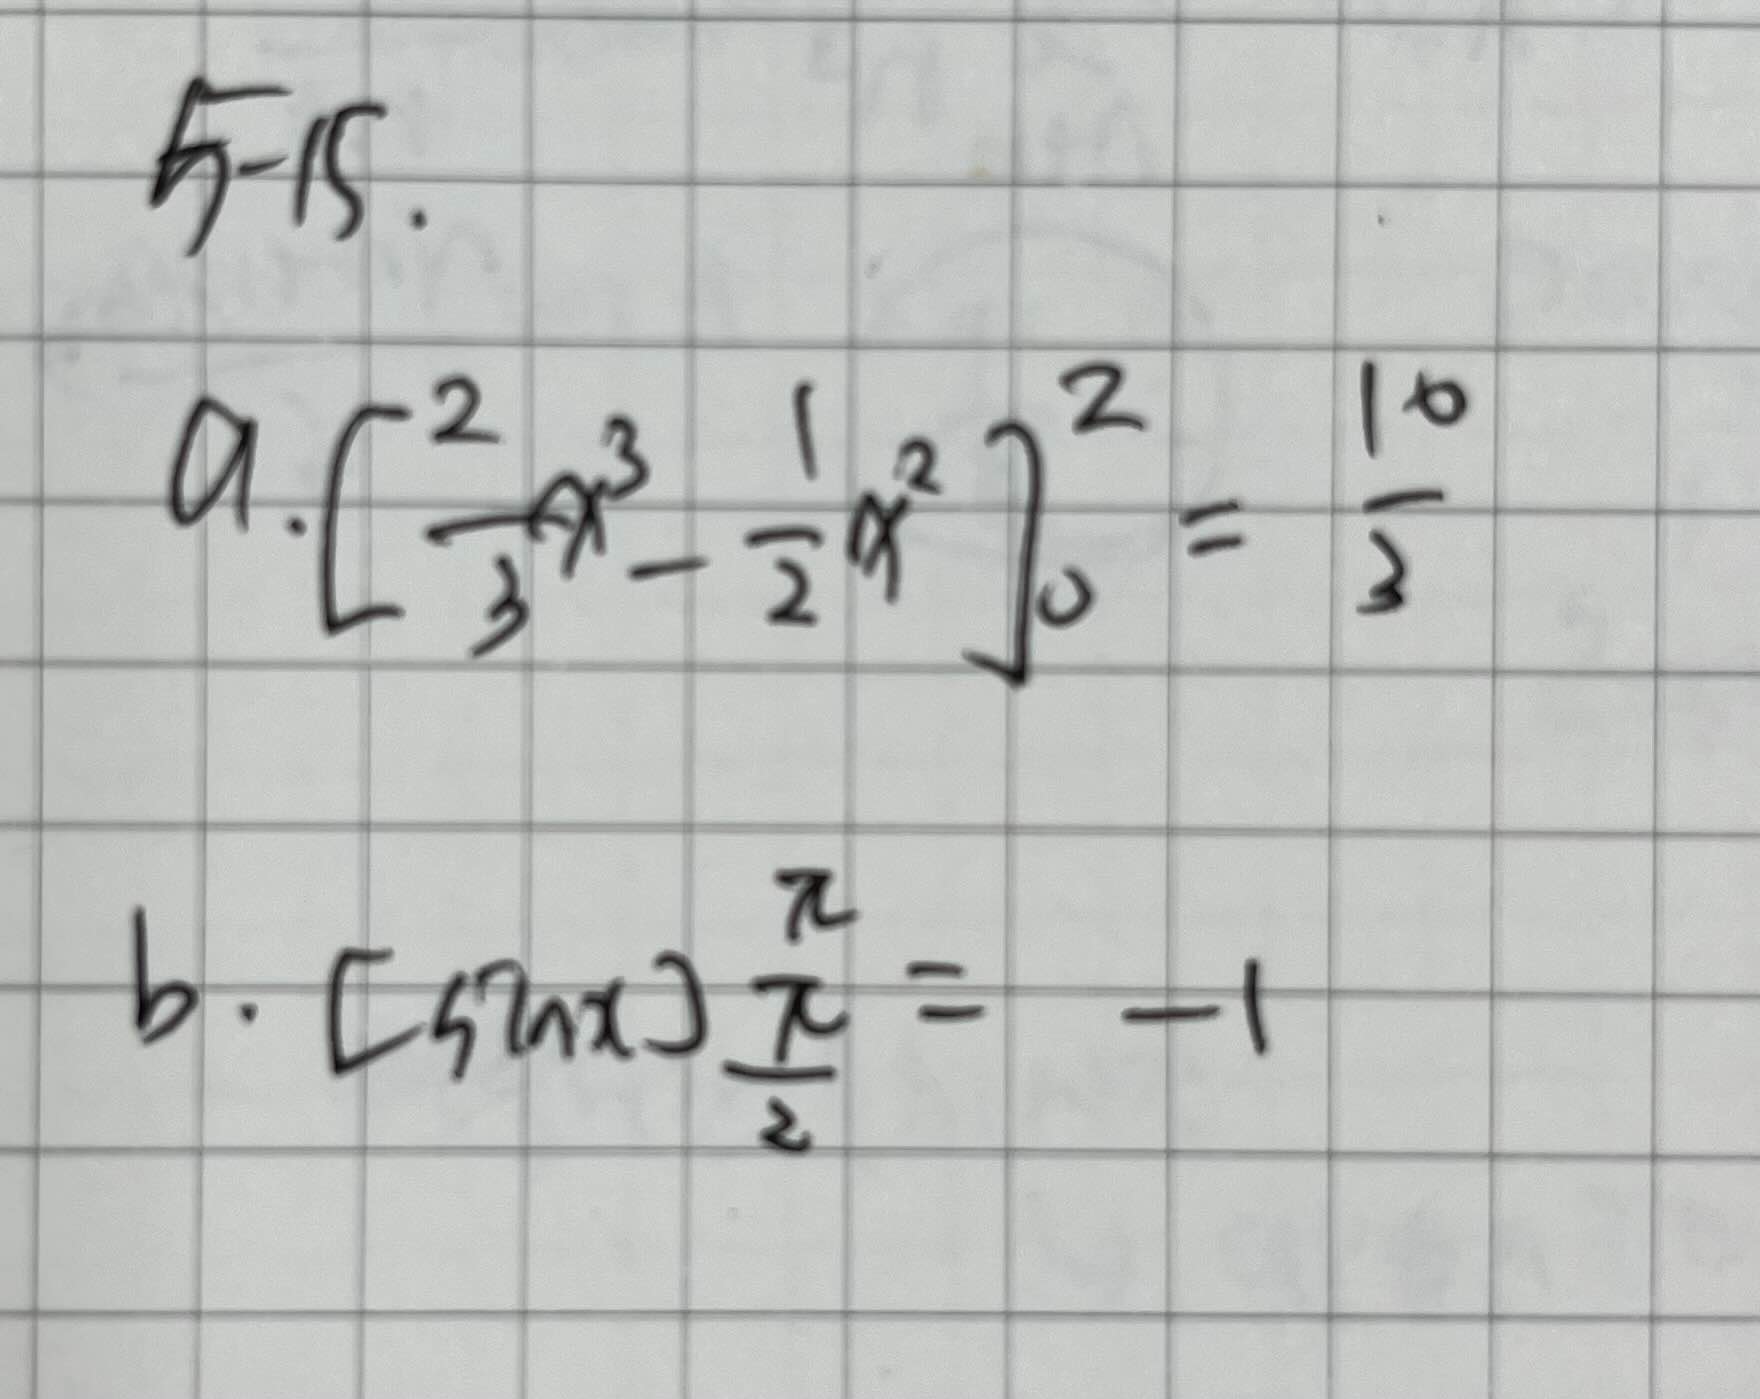 5-15.
a. [2/3 x³ - 1/2 x²]₀² = 10/3
b. [sin x]_{π/2}^{π} = -1